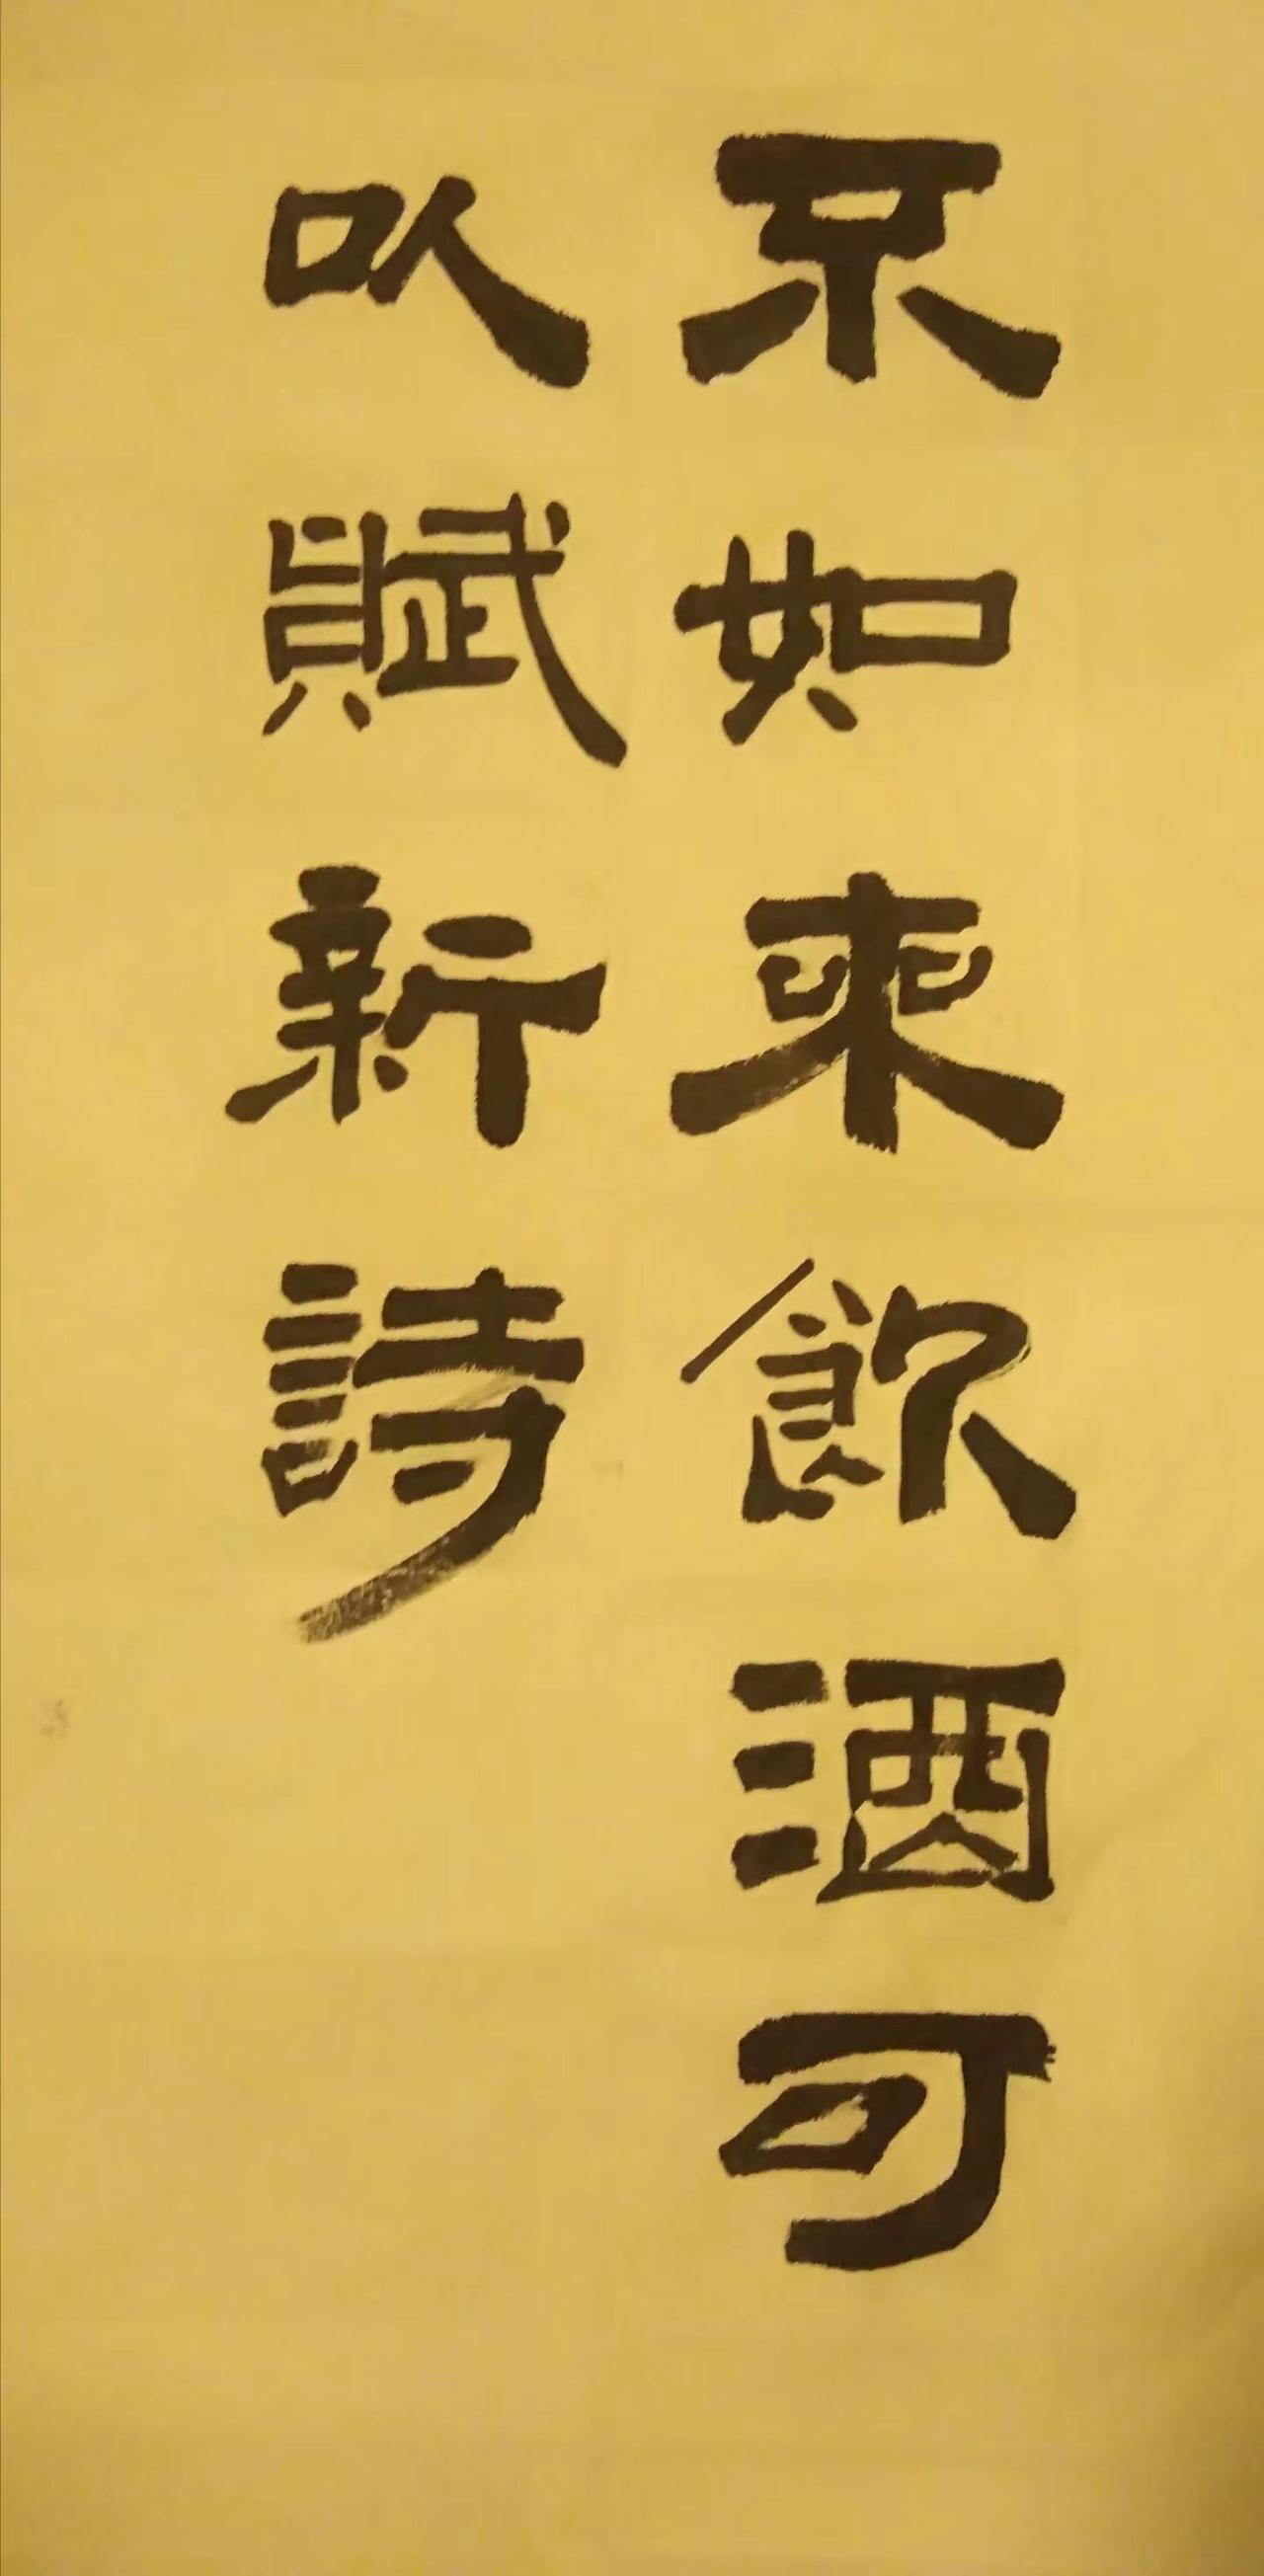 不如来飲酒可
以賦新詩